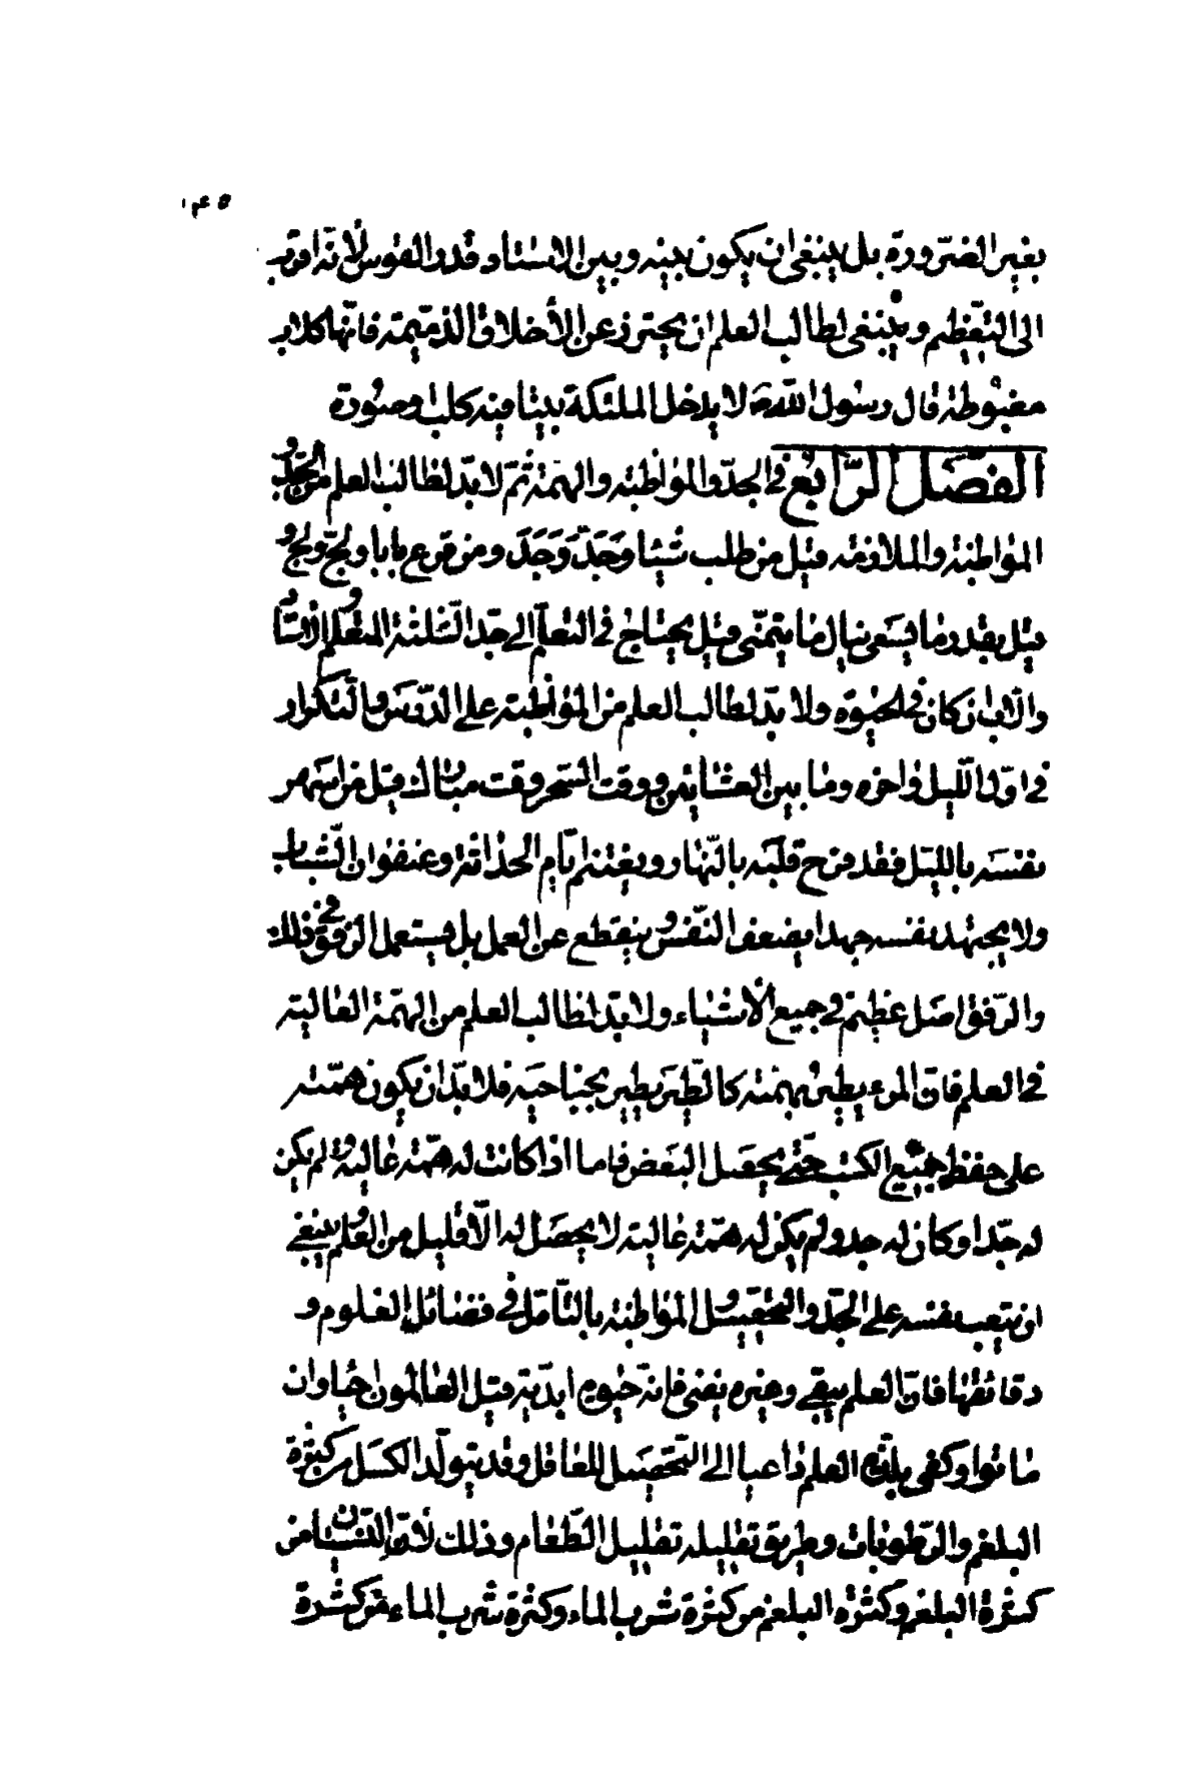 ١٤٥
بغير الضرورة بل ينبغى ان يكون بينه وبين الاستاد قدر القوس لانّه اقرب
الى التعظيم وينبغى لطالب العلم ان يحترز عن الأخلاق الذميمة فانّها كلاب
معنويّة قال رسول اللّه ص لا يدخل الملئكة بيتا فيه كلب وصورة
الفصل الرّابع فى الجدّ والمواظبة والهمّة ثم لا بدّ لطالب العلم من الجدّ و
المواظبة والملازمة قيل من طلب شيئا وجَدّ وَجَدَ ومن قرع بابا ولجّ ولج و
قيل بقدر ما يسعى ينال ما يتمنّى قيل يحتاج فى التعلّم الى جدّ الثلثة المتعلم والاستاد
والاب ان كان فى الحيوة ولا بدّ لطالب العلم من المواظبة على الدّرس والتكرار
فى اوّل اللّيل واخره وما بين العشائين ووقت السّحر وقت مبارك قيل من اسهر
نفسه بالليل فقد فرح قلبه بالنّهار ويغتنم ايّام الحداثة وعنفوان الشّباب
ولا يجتهد نفسه جهدا يضعف النّفس وينقطع عن العمل بل يستعمل الرفق فى ذلك
والرّفق اصل عظيم فى جميع الأشياء ولا بدّ لطالب العلم من الهمّة العالية
فى العلم فانّ المرء يطير بهمّته كالطّير يطير بجناحيه فلا بدّ ان يكون همّته
على حفظ جميع الكتب حتّى يحصل البعض فاما اذا كانت له همّة عالية ولم يكن
له جدّ او كان له جد ولم يكن له همّة عالية لا يحصل له الّا قليل من العلم وينبغى
ان يتعب نفسه على الجدّ والتحصيل والمواظبة بالتّأمّل فى فضائل العلوم و
دقائقها فانّ العلم يبقى وغيره يفنى فانّه حيوة ابديّة قيل العالمون احياء وان
ماتوا وكفى بلذّة العلم داعيا الى التّحصيل للعاقل وقد يتولّد الكسل من كثرة
البلغم والرّطوبات وطريق تقليله تقليل الطّعام وذلك لأنّ النسيان من
كثرة البلغم وكثرة البلغم من كثرة شرب الماء وكثرة شرب الماء من كثرة